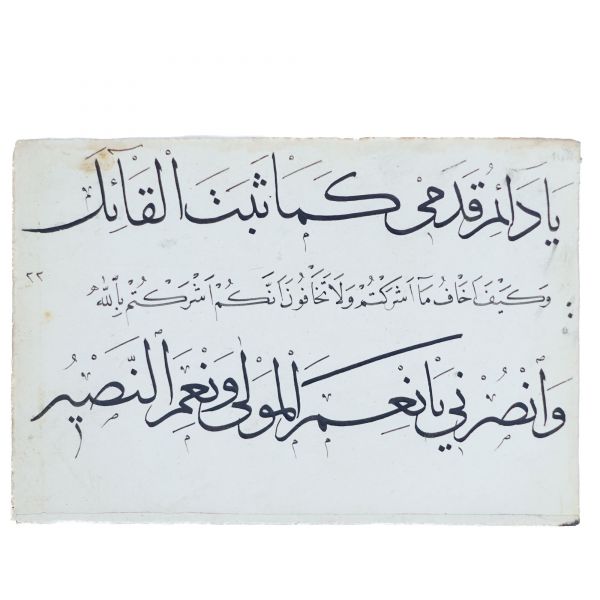 يَا دَائِمُ قَدَمِي كَمَا ثَبَتَ الْقَائِلُ
وَكَيْفَ اَخَافُ مَآ اَشْرَكْتُمْ وَلَا تَخَافُونَ اَنَّكُمْ اَشْرَكْتُمْ بِاللّٰهِ
٢٢
وَانْصُرْنِي يَا نِعْمَ الْمَوْلٰى وَنِعْمَ النَّصِيْرُ